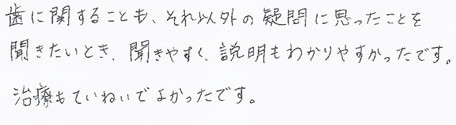 歯に関することも、それ以外の疑問に思ったことを
聞きたいとき、聞きやすく、説明もわかりやすかったです。
治療もていねいでよかったです。